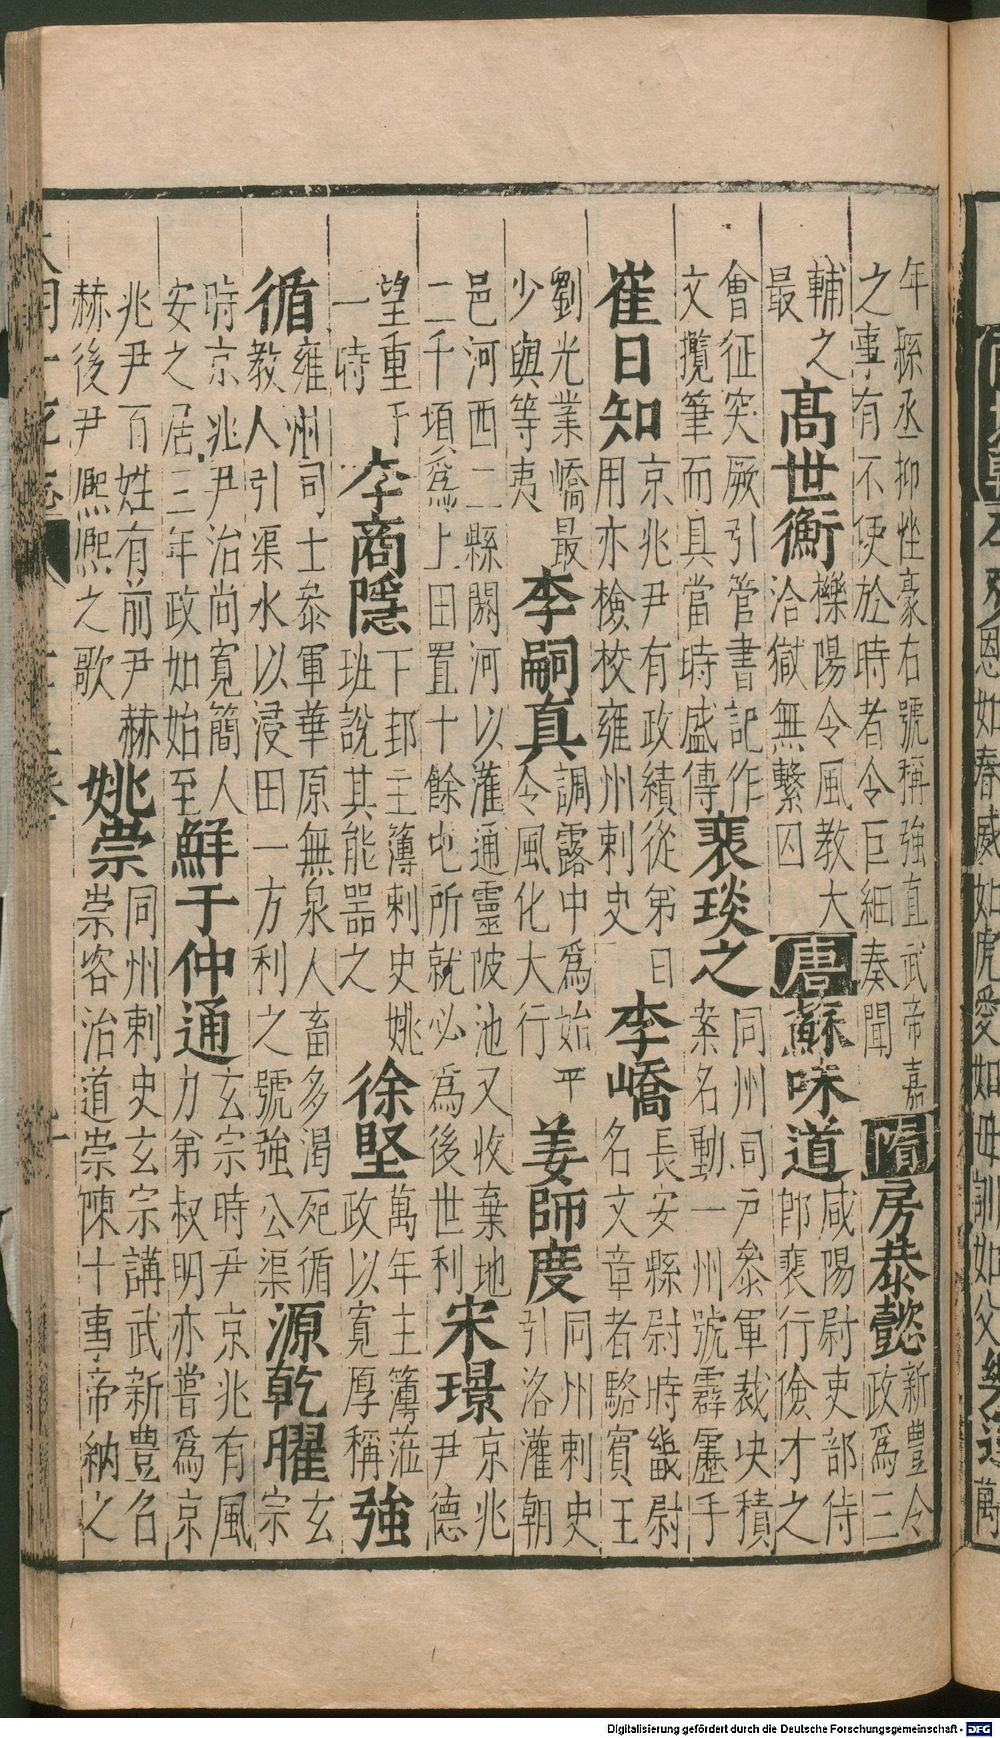 恩如春威如虎愛如母訓如父樂遜萬
年縣丞抑挫豪右號稱強直武帝嘉之事有不便於時者令巨細奏聞隋房恭懿新豐令政為三
輔之最高世衡櫟陽令風教大洽獄無繫囚唐蘇味道咸陽尉吏部侍郎裴行儉才之
會征突厥引管書記作文攬筆而具當時盛傳裴琰之同州司戶叅軍裁決積案名動一州號霹靂手
崔日知京兆尹有政績從第日用亦檢校雍州剌史李嶠長安縣尉時畿尉名文章者駱賓王
劉光業嶠最少與等夷李嗣真調露中為始平令風化大行姜師度同州剌史引洛灌朝
邑河西二縣閼河以灌通靈陂池又收棄地二千頃為上田置十餘屯所就必為後世利宋璟京兆尹德
望重于一時李商隱下邽主簿剌史姚班說其能器之徐堅萬年主簿蒞政以寬厚稱強
循雍州司士叅軍華原無泉人畜多渴死循教人引渠水以浸田一方利之號強公渠源乾曜玄宗
時京兆尹治尚寬簡人安之居三年政如始至鮮于仲通玄宗時尹京兆有風力第叔明亦嘗為京
兆尹百姓有前尹赫赫後尹熈熈之歌姚崇同州剌史玄宗講武新豊名崇咨治道崇陳十事帝納之
Digitalisierung gefördert durch die Deutsche Forschungsgemeinschaft - DFG